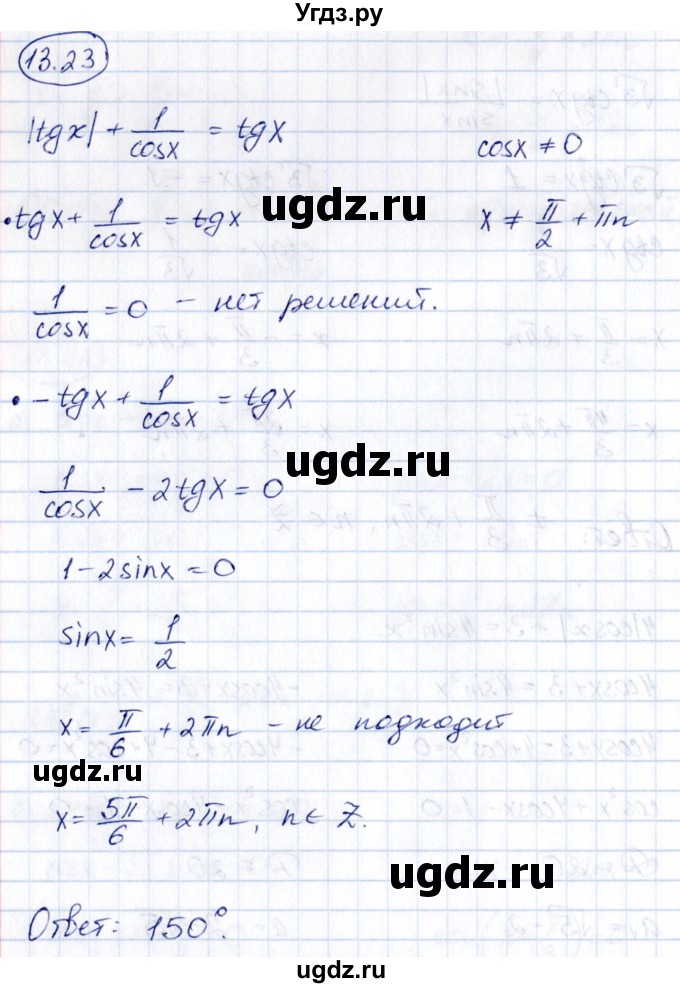 Угдз.ру
13.23
|tgx| + 1/cosx = tgx
cosx ≠ 0
• tgx + 1/cosx = tgx
ugdz.ru
x ≠ π/2 + πn
1/cosx = 0 – нет решений.
• – tgx + 1/cosx = tgx
ugdz.ru
1/cosx – 2tgx = 0
1 – 2sinx = 0
sinx = 1/2
x = π/6 + 2πn – не подходит
ugdz.ru
x = 5π/6 + 2πn, n ∈ Z.
ugdz.ru
Ответ: 150°.
ugdz.ru
ugdz.ru